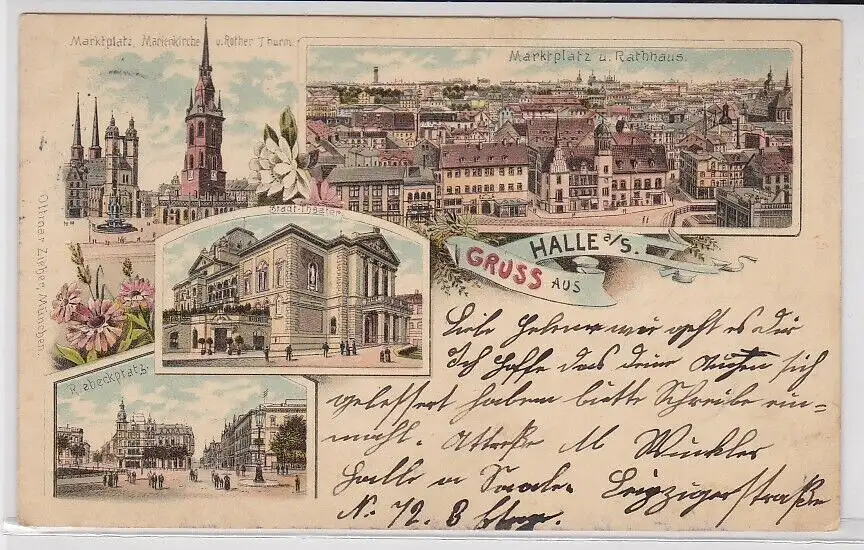 Marktplatz, Marienkirche u. Rother Thurm.
Marktplatz u. Rathhaus.
Stadt-Theater
Riebeckplatz.
Ottmar Zieher, München.
GRUSS AUS
HALLE a/S.
Liebe Helene wie geht es dir
Ich hoffe das deine Augen sich
gelessert haben bitte Schreibe ein=
mahl. Attreße M Winkler
Halle a Saale. Leipzigerstraße
No. 72. 3 Etag.